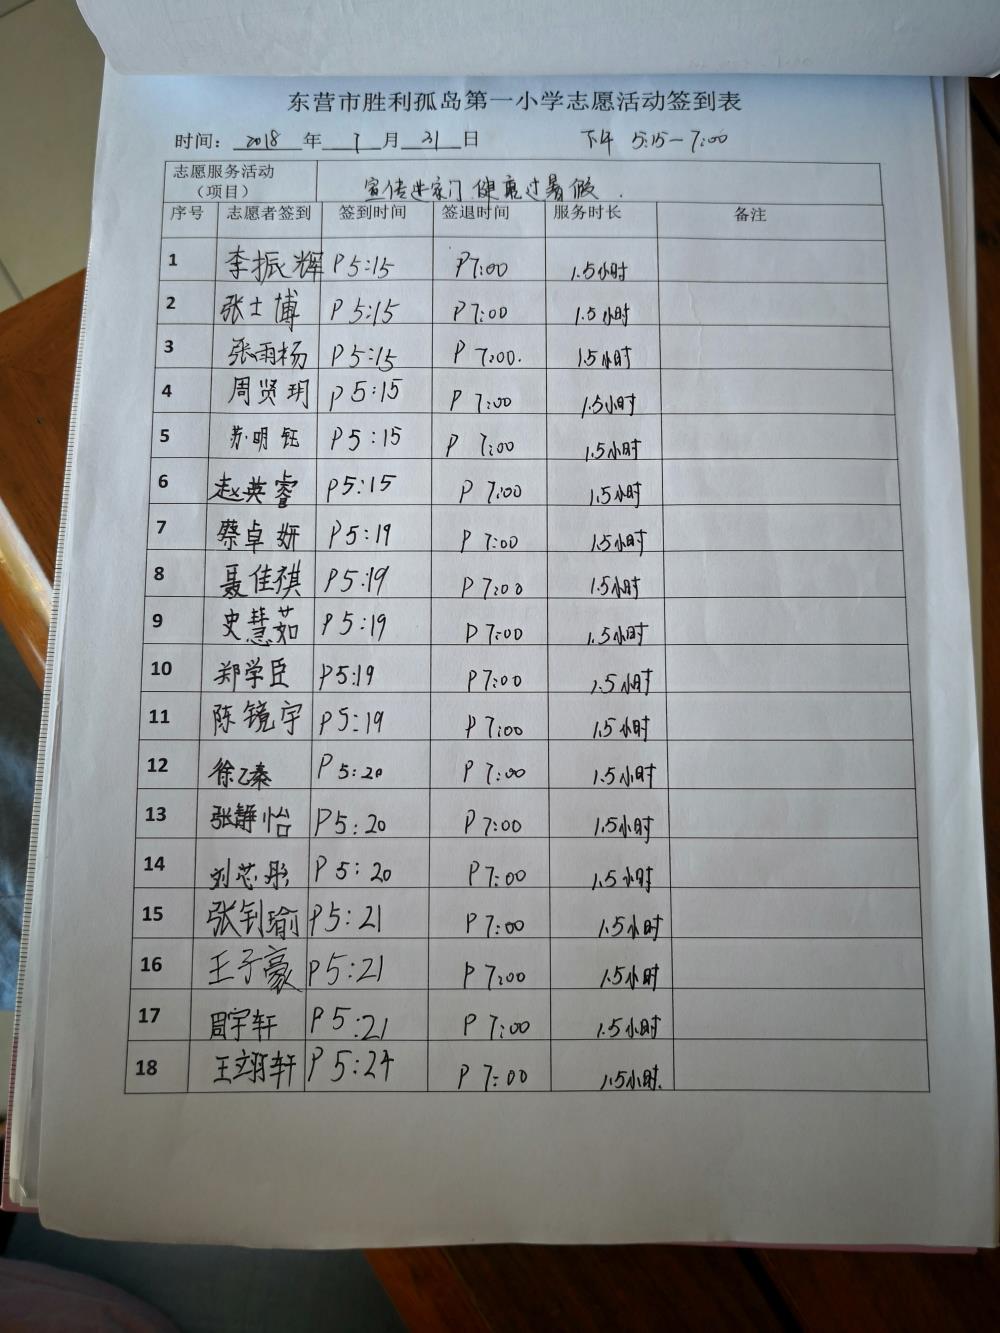 东营市胜利孤岛第一小学志愿活动签到表
时间：2018年7月21日 下午 5:15-7:00
志愿服务活动（项目） 宣传进家门 健康过暑假.
序号 志愿者签到 签到时间 签退时间 服务时长 备注
1 李振辉 P5:15 P7:00 1.5小时
2 张士博 P5:15 P7:00 1.5小时
3 张雨杨 P5:15 P7:00. 1.5小时
4 周贤玥 P5:15 P7:00 1.5小时
5 苏明钰 P5:15 P7:00 1.5小时
6 赵英睿 P5:15 P7:00 1.5小时
7 蔡卓妍 P5:19 P7:00 1.5小时
8 聂佳祺 P5:19 P7:00 1.5小时
9 史慧茹 P5:19 P7:00 1.5小时
10 郑学臣 P5:19 P7:00 1.5小时
11 陈镜宇 P5:19 P7:00 1.5小时
12 徐乙秦 P5:20 P7:00 1.5小时
13 张静怡 P5:20 P7:00 1.5小时
14 刘芯彤 P5:20 P7:00 1.5小时
15 张钊瑜 P5:21 P7:00 1.5小时
16 王子豪 P5:21 P7:00 1.5小时
17 周宇轩 P5:21 P7:00 1.5小时
18 王翊轩 P5:24 P7:00 1.5小时.